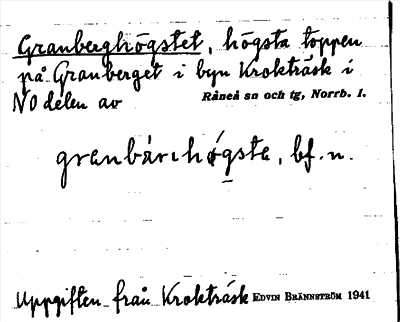 Granberghögstet, högsta toppen
på Granberget i byn Krokträsk i
NO delen av Råneå sn och tg, Norrb. l.
granbärıhøgsta, bf. n.
Uppgiften från Krokträsk EDVIN BRÄNNSTRÖM 1941